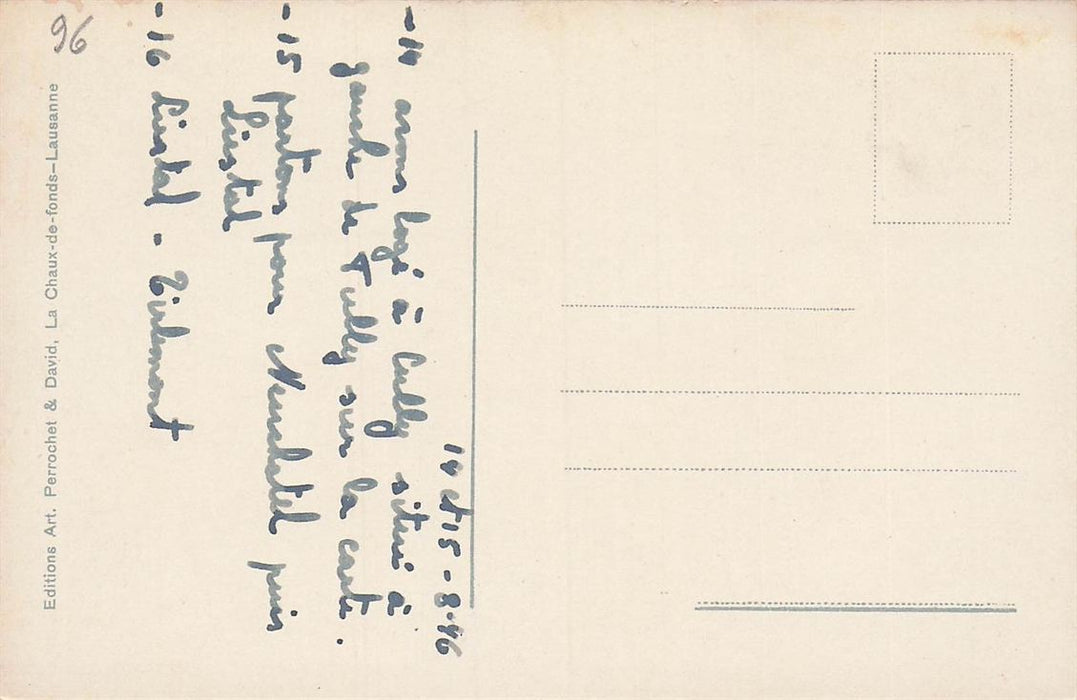 14 et 15-8-46
- 14 avons logé à Cully situé à
gauche de Pully sur la carte.
- 15 partons pour Neuchatel puis
Liestal
- 16 Liestal - Tirlemont
96
Editions Art. Perrochet & David, La Chaux-de-fonds-Lausanne